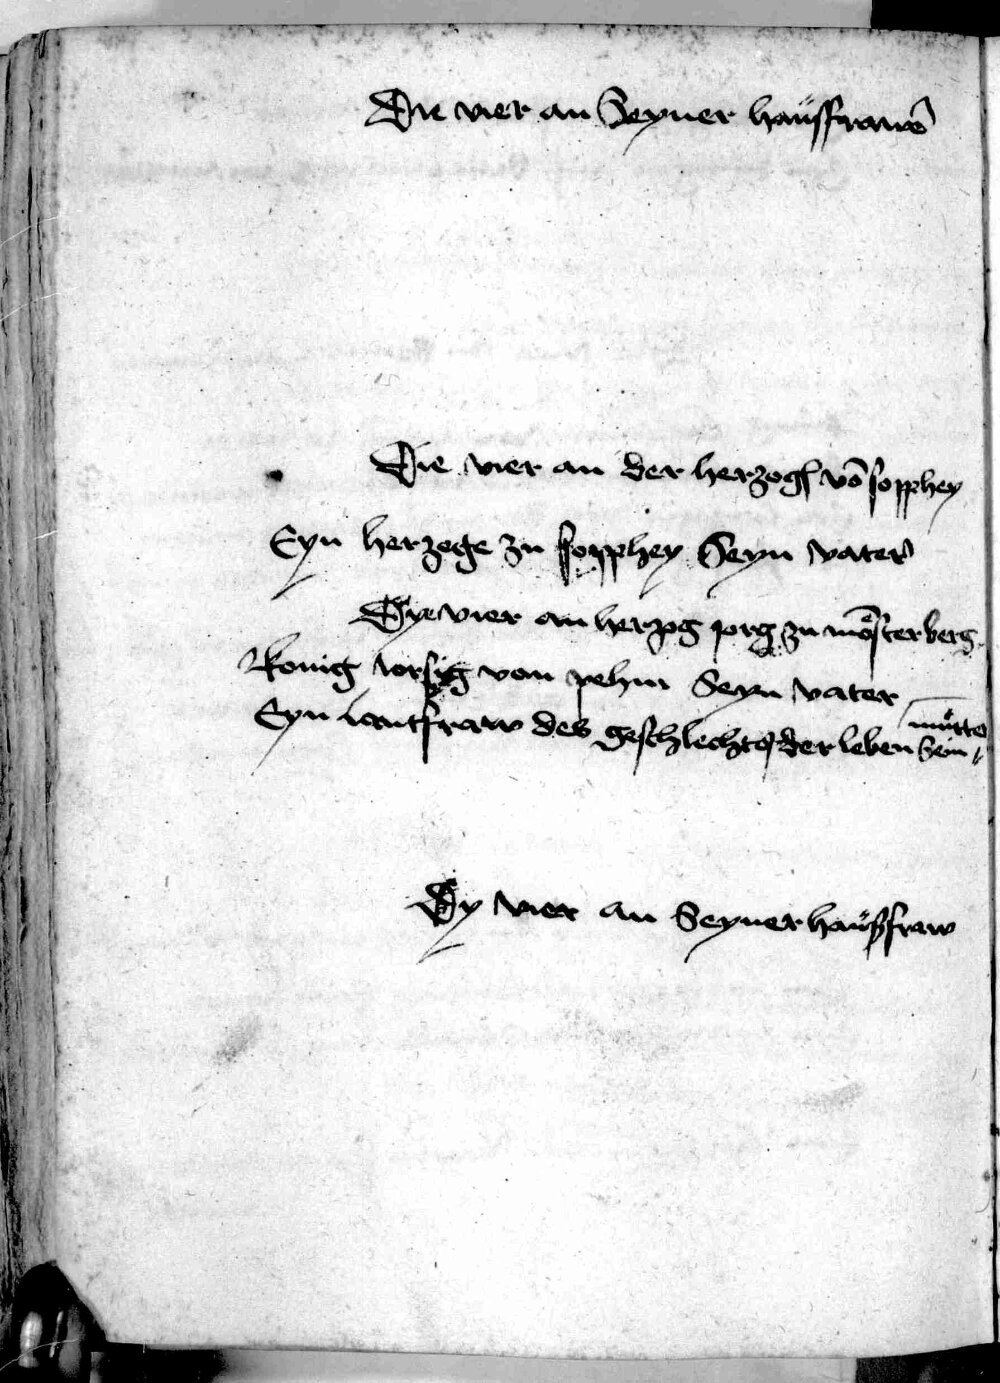 Die vier an Seyner haüsfrawē
Die vier an der herzogſ vō sopphey
Eyn herzoge zu sopphey Seyn vater
Dye vier an herzog jorg zu mosterberg
Konig jorsig von pehm Seyn vater
Eyn lantfraw des geschlechts der leben Sein mütter
Dy vier an Seyner haüsfraw